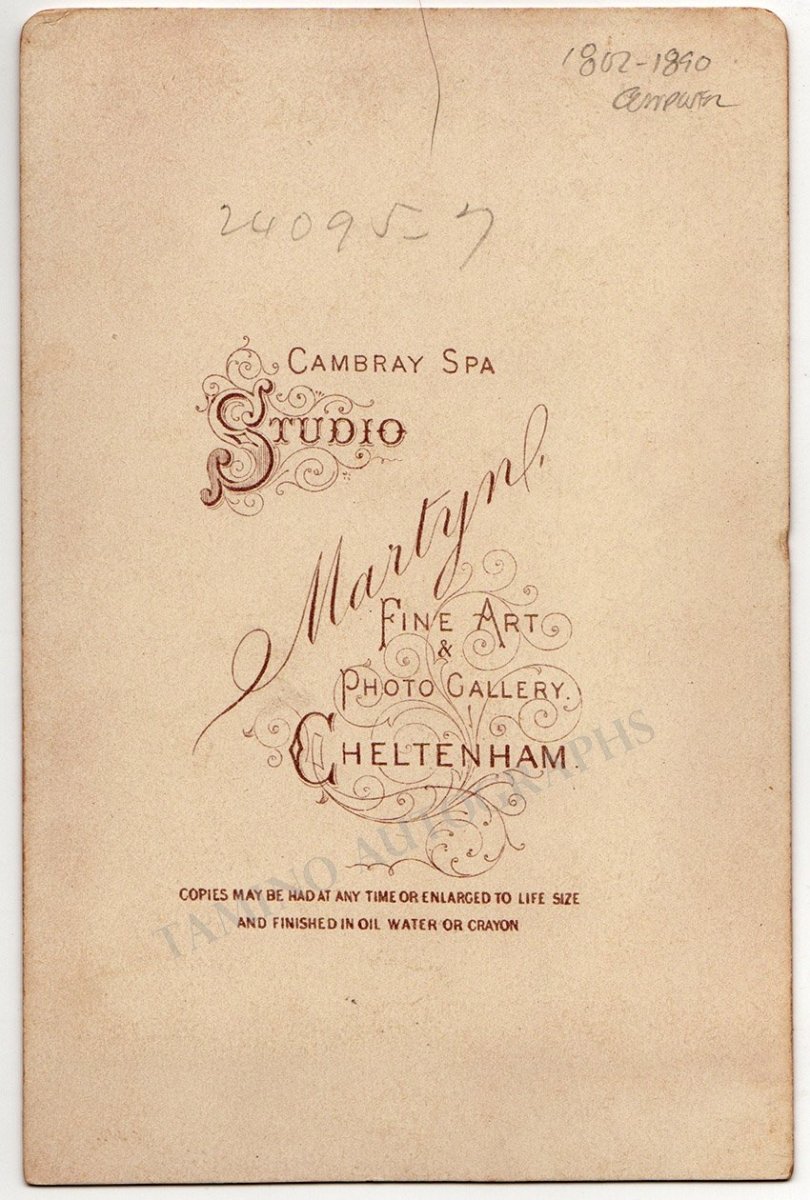 1802-1890
24095-7
CAMBRAY SPA
STUDIO
Martyn.
FINE ART
&
PHOTO GALLERY.
CHELTENHAM.
TAMINO AUTOGRAPHS
COPIES MAY BE HAD AT ANY TIME OR ENLARGED TO LIFE SIZE
AND FINISHED IN OIL WATER OR CRAYON